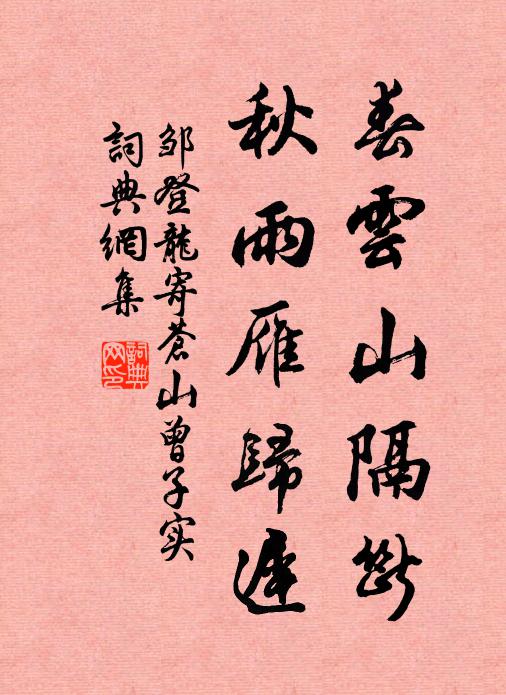 春雲山隔斷
秋雨雁歸遲
邹登龍寄蒼山曾子实
詞典網集
詞典网印